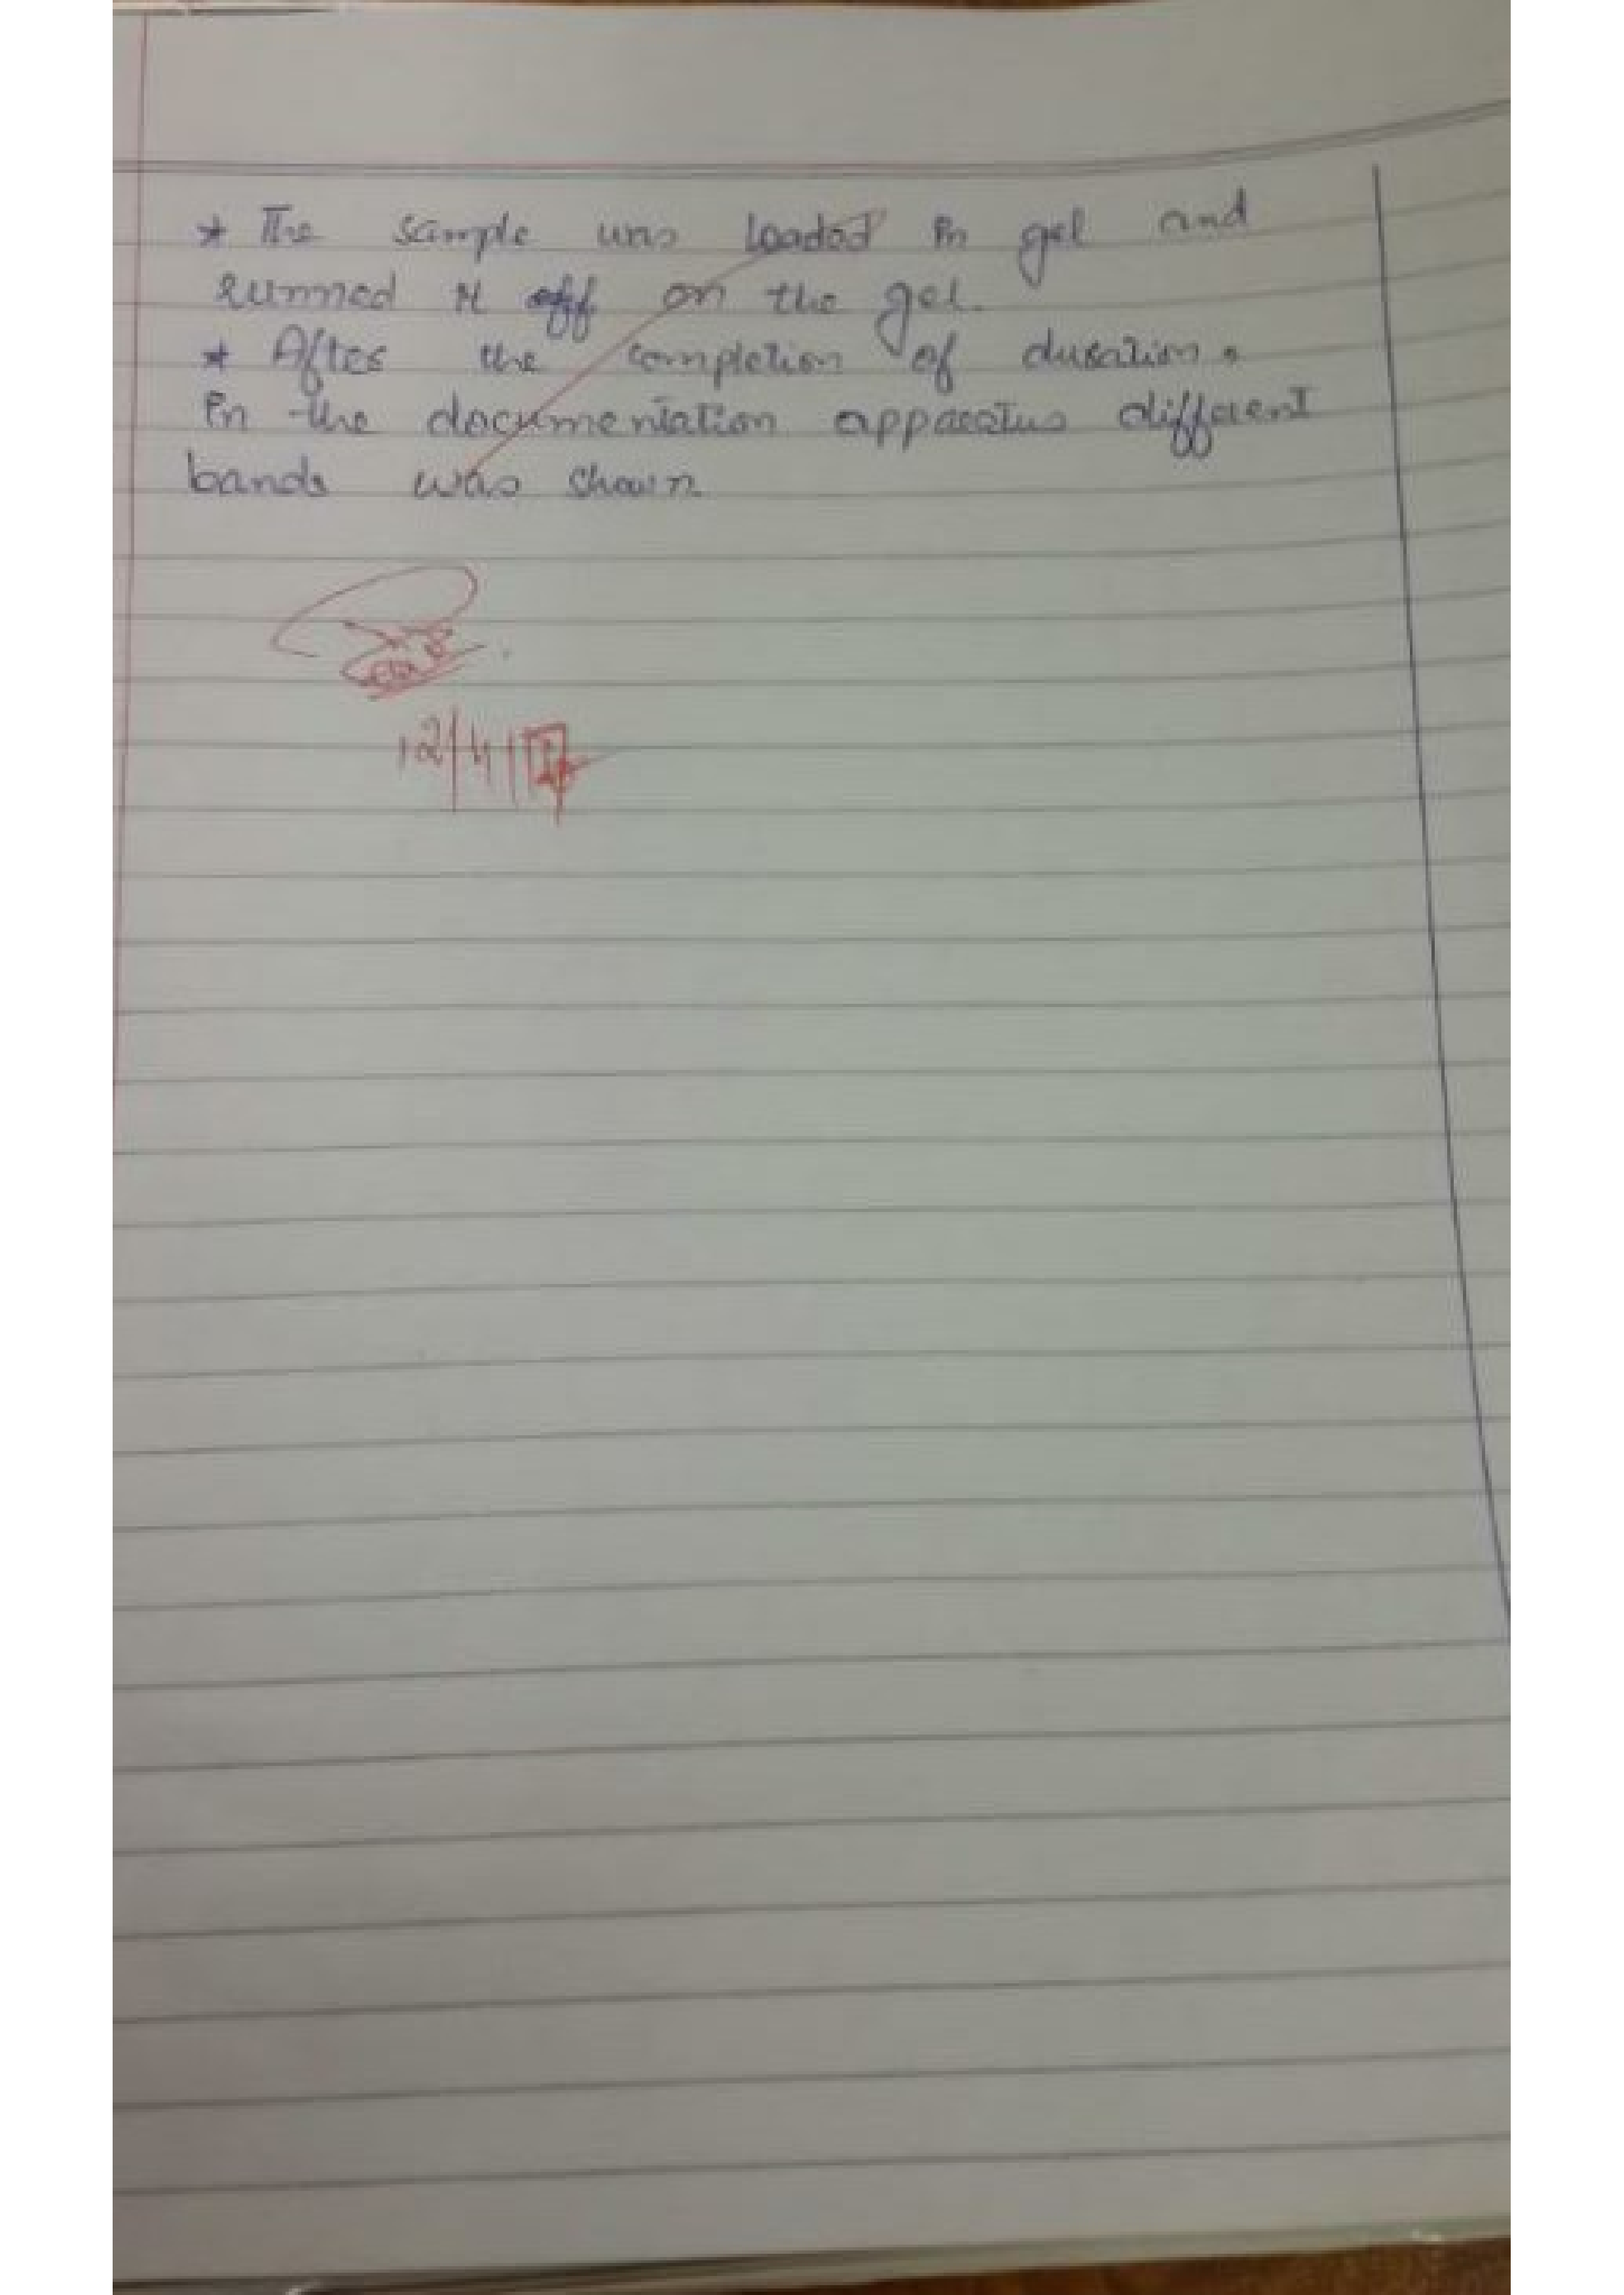 * The sample was loaded in gel and
runned it off on the gel.
* After the completion of duration.
in the documentation apparatus different
bands was shown
12/4/